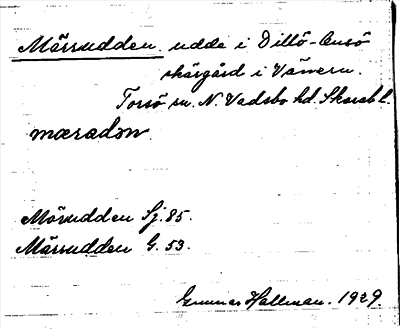 Mårsudden. udde i Dillö-Ousö
skärgård i Vänern.
Torsö sn. N. Vadsbo hd. Skarab. l.
mœradən.
Mörsudden Sj. 85.
Mårsudden G. 53.
Gunnar Hallman. 1929.